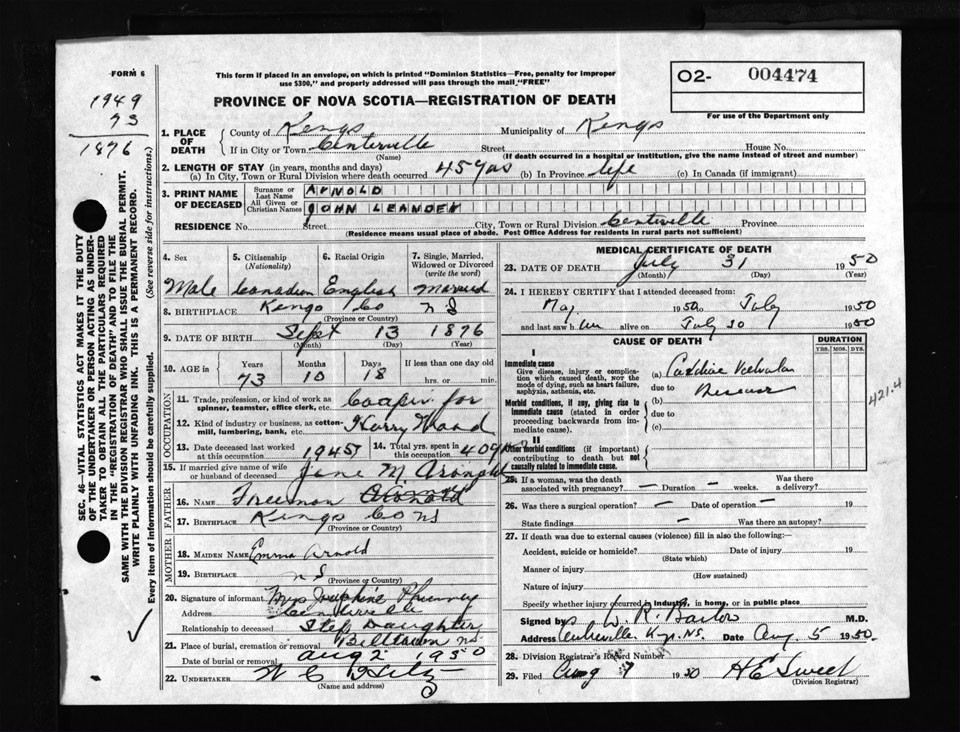 FORM 6
This form if placed in an envelope, on which is printed "Dominion Statistics—Free, penalty for improper
use $300," and properly addressed will pass through the mail "FREE"
O2- 004474
For use of the Department only
PROVINCE OF NOVA SCOTIA—REGISTRATION OF DEATH
1949
73
1876
1. PLACE OF DEATH
County of Kings
Municipality of Kings
If in City or Town Centerville Street House No.
(Name) (If death occurred in a hospital or institution, give the name instead of street and number)
2. LENGTH OF STAY (in years, months and days)
(a) In City, Town or Rural Division where death occurred 45 yrs (b) In Province life (c) In Canada (if immigrant)
3. PRINT NAME OF DECEASED
Surname or Last Name ARNOLD
All Given or Christian Names JOHN LEANDER
RESIDENCE No. Street City, Town or Rural Division Centerville Province
(Residence means usual place of abode. Post Office Address for residents in rural parts not sufficient)
4. Sex
Male
5. Citizenship (Nationality)
Canadian
6. Racial Origin
English
7. Single, Married, Widowed or Divorced (write the word)
Married
8. BIRTHPLACE Kings Co N S
(Province or Country)
9. DATE OF BIRTH Sept 13 1876
(Month) (Day) (Year)
10. AGE in Years Months Days If less than one day old
73 10 18 hrs. or min.
OCCUPATION
11. Trade, profession, or kind of work as spinner, teamster, office clerk, etc. Cooper for
12. Kind of industry or business, as cotton-mill, lumbering, bank, etc.
13. Date deceased last worked at this occupation 1945
14. Total yrs. spent in this occupation 40 yrs
15. If married give name of wife or husband of deceased Jane M.
FATHER
16. NAME Freeman Arnold
17. BIRTHPLACE Kings Co NS
(Province or Country)
MOTHER
18. MAIDEN NAME Emma Arnold
19. BIRTHPLACE N S
(Province or Country)
20. Signature of informant Mrs Josephine Phinney
Address Centerville
Relationship to deceased Step Daughter
21. Place of burial, cremation or removal Billtown NS
Date of burial or removal Aug 2 1950
22. UNDERTAKER W C Hiltz
(Name and address)
MEDICAL CERTIFICATE OF DEATH
23. DATE OF DEATH July 31 1950
(Month) (Day) (Year)
24. I HEREBY CERTIFY that I attended deceased from:
May 1950 to July 1950
and last saw him alive on July 30 1950
CAUSE OF DEATH
DURATION
YRS. MOS. DYS.
I
Immediate cause
Give disease, injury or complication which caused death, NOT the mode of dying, such as heart failure, asphyxia, asthenia, etc.
(a) Cardiac Valvular
due to Disease
(b)
421.4
Morbid conditions, if any, giving rise to immediate cause (stated in order proceeding backwards from immediate cause).
due to
(c)
II
Other morbid conditions (if important) contributing to death but not causally related to immediate cause.
25. If a woman, was the death associated with pregnancy? — Duration — weeks. Was there a delivery?
26. Was there a surgical operation? — Date of operation — 19
State findings — Was there an autopsy?
27. If death was due to external causes (violence) fill in also the following:—
Accident, suicide or homicide? Date of injury 19
(State which)
Manner of injury
(How sustained)
Nature of injury
Specify whether injury occurred in industry, in home, or in public place
Signed by W. R. Barlow M.D.
Address Centreville Kings NS. Date Aug. 5 1950.
28. Division Registrar's Record Number
29. Filed Aug 7 1950 H E Sweet
(Division Registrar)
SEC. 46—VITAL STATISTICS ACT MAKES IT THE DUTY
OF THE UNDERTAKER OR PERSON ACTING AS UNDER-
TAKER TO OBTAIN ALL THE PARTICULARS REQUIRED
IN THE "REGISTRATION OF DEATH" AND TO FILE THE
SAME WITH THE DIVISION REGISTRAR WHO SHALL ISSUE THE BURIAL PERMIT.
WRITE PLAINLY WITH UNFADING INK. THIS IS A PERMANENT RECORD.
Every item of information should be carefully supplied. (See reverse side for instructions.)